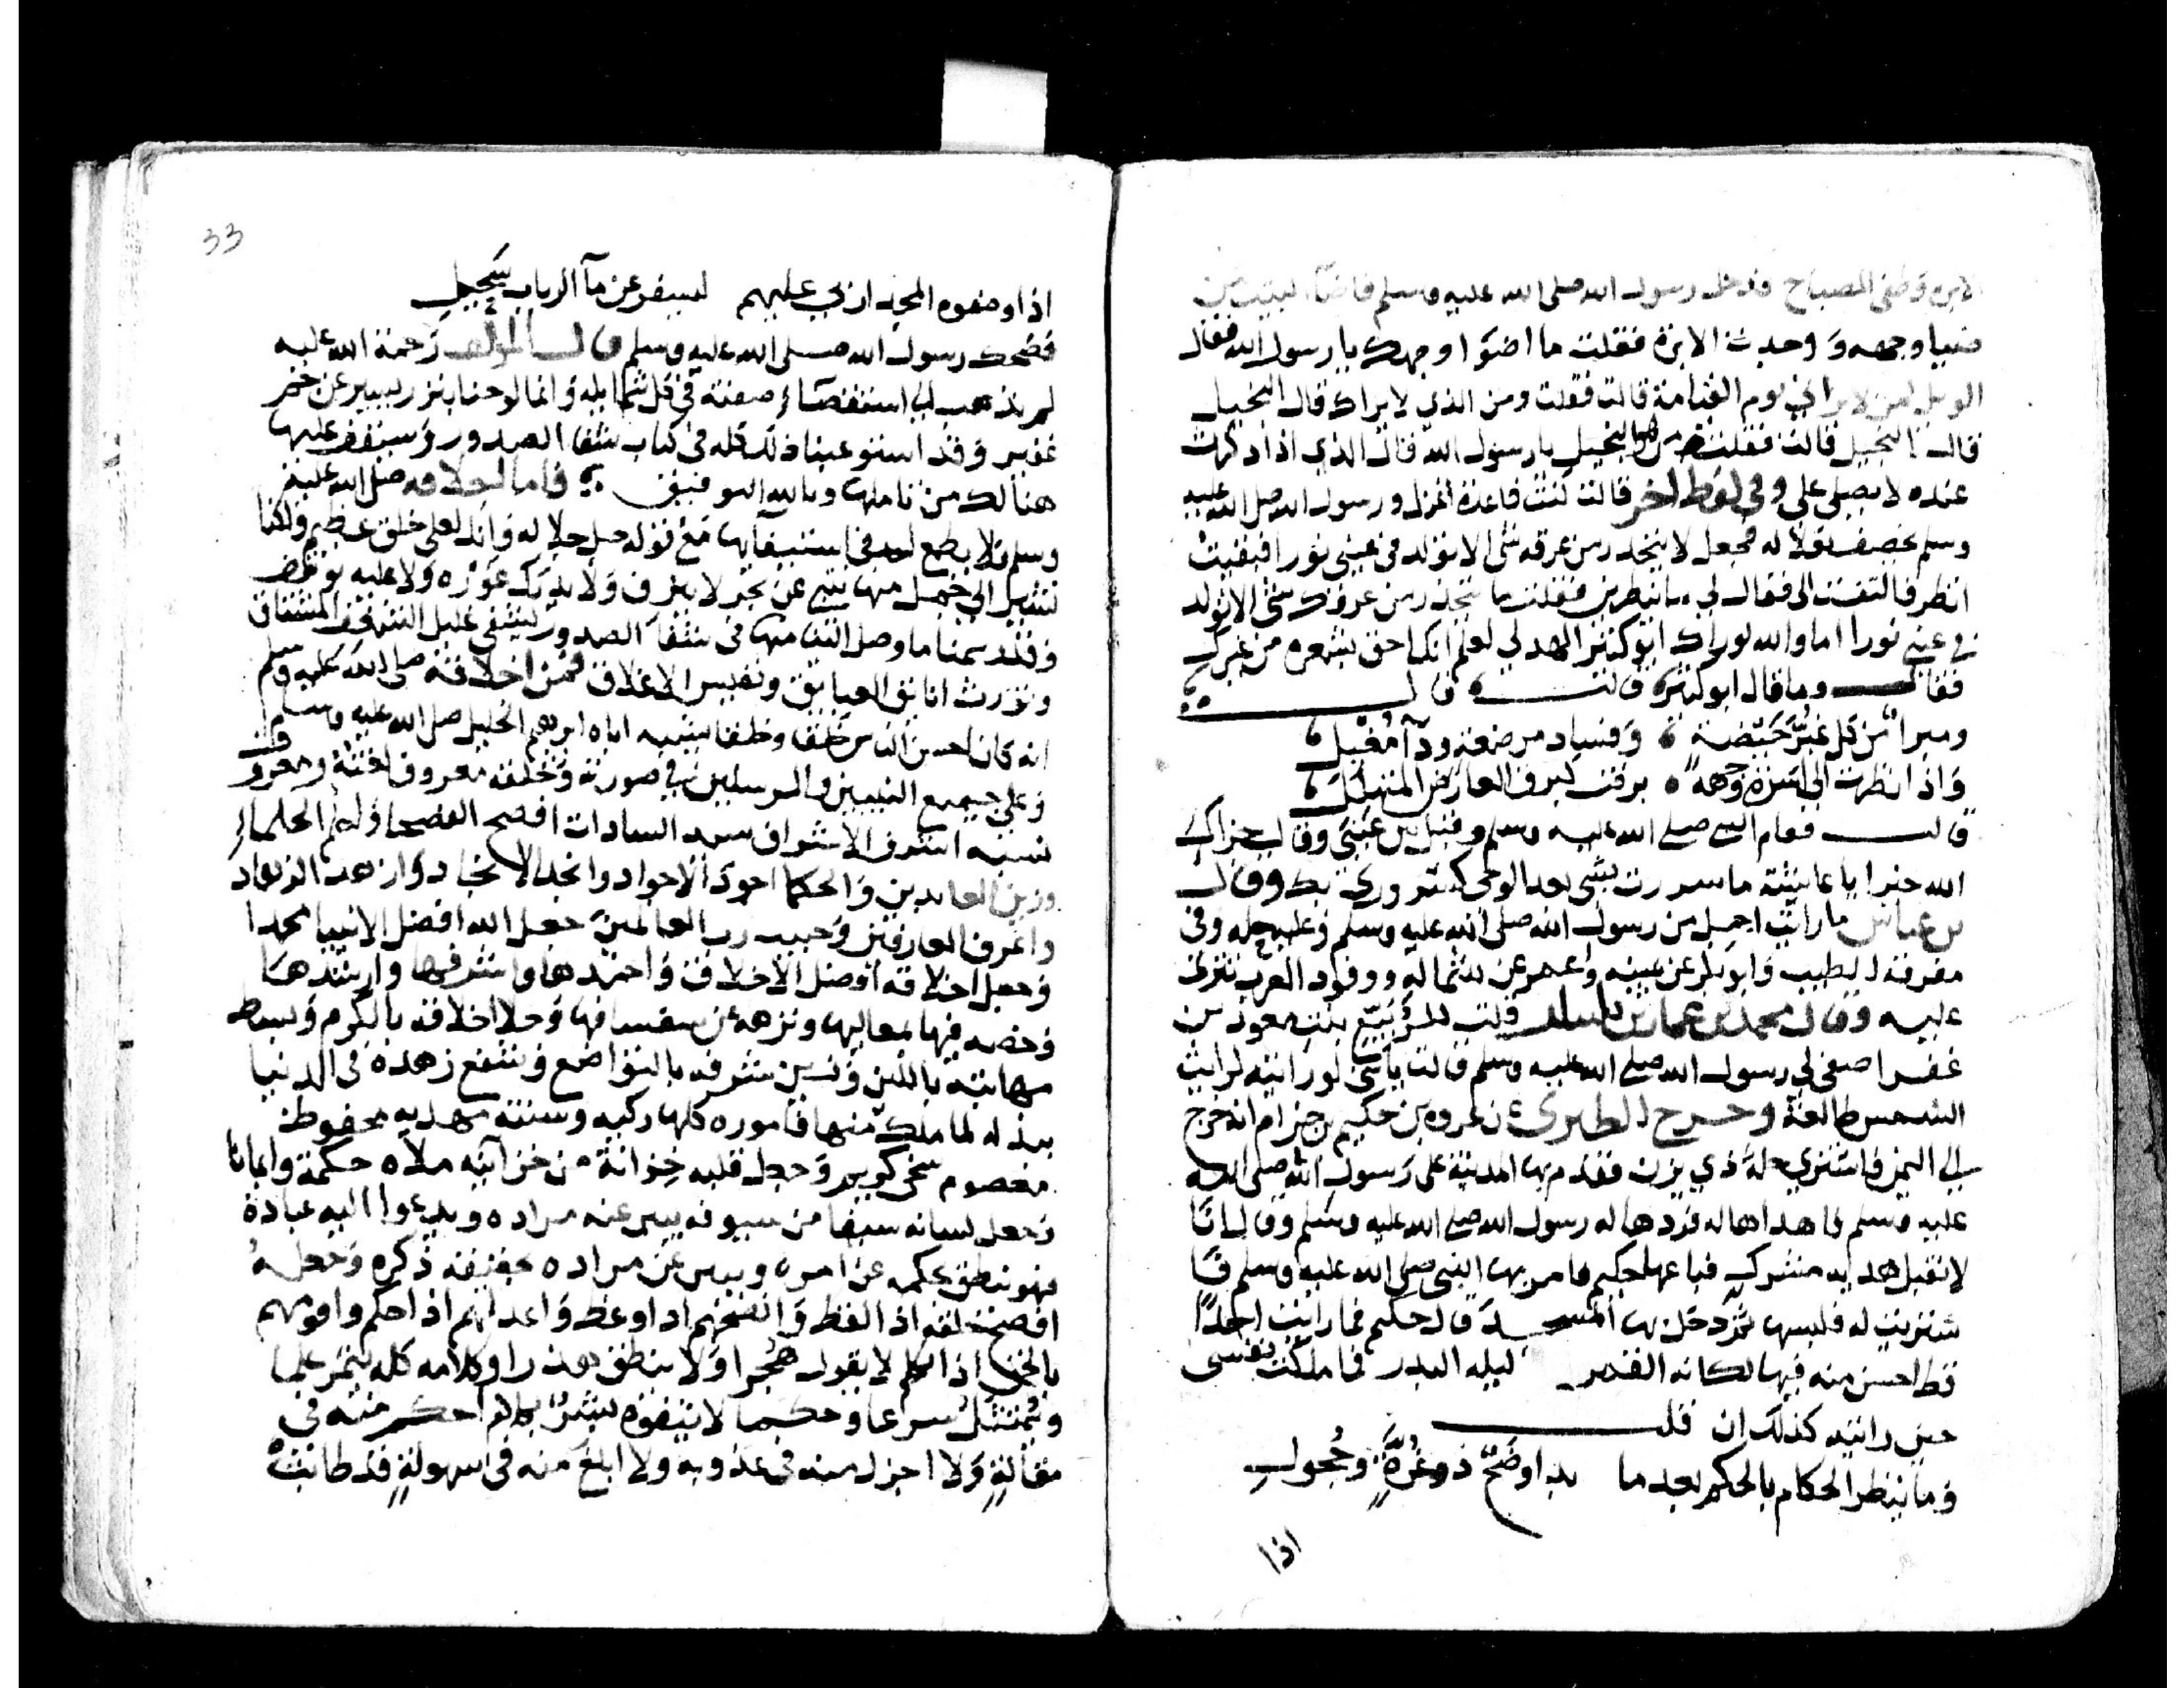 الابره وطفى المصباح فدخل رسول الله صلى الله عليه وسلم فاضآ البيت من
ضيا وجهه ووجدت الابرة فقلت ما اضوا وجهك يا رسول الله فقال
الويل لمن لا يراني يوم القيامة قالت فقلت ومن الذي لا يراك قال البخيل
قال البخيل قالت فقلت من هو البخيل يا رسول الله قال الذي اذا ذكرت
عنده لا يصلى على وفي لفظ اخر قالت كنت قاعدة اغزل ورسول الله صلى الله عليه
وسلم يخصف نعلا له فجعل لا ينحدر من عرقه شى الا تولد في عيني نورا فبقيت
انظر فالتفت الى فقال لي ما تنظرين فقلت ما ينحدر من عرقك شى الا تولد
في عيني نورا اما والله لو راك ابو كبير الهدلي لعلم انك احق بشعره من غيرك
فقال وما قال ابو كبير قالت قال
ومبرا من كل غبر حيضة وفساد مرضعة ودآ مغيل
واذا نظرت الى اسرة وجهه برقت كبرق العارض المتهلل
قالت فقام النبى صلى الله عليه وسلم وقبل بين عيني وقال جزاك
الله خيرا يا عايشة ما سررت بشى بعد الوحى كسروري بك وقال
بن عباس ما رايت اجمل من رسول الله صلى الله عليه وسلم وعليه حله وفى
مفرقه الطيب وابو بكر عن يمينه وعمر عن شماله ووفود العرب تعرض
عليه وقال محمد بن عمار بن ياسر قلت للربيع بنت معوذ بن
عفرا صفي لي رسول الله صلى الله عليه وسلم قالت يا بني لو رايته لرايت
الشمس طالعة وخرج الطبري عن عروه بن حكيم بن حزام انه خرج
الى اليمن فاشترى حلة ذي يزن فقدم بها المدينة على رسول الله صلى الله
عليه وسلم فاهداها له فردها له رسول الله صلى الله عليه وسلم وقال انا
لا نقبل هديه مشرك فباعها حكيم فامر بها النبي صلى الله عليه وسلم فا
شتريت له فلبسها ثم دخل بها المسجد قال حكيم فما رايت احدا
قط احسن منه فيها لكانه القمر ليله البدر فما ملكت نفسى
حين رايته كذلك ان قلت
وما ينظر الحكام بالحكم بعد ما بدا وضح ذو غرة وحجول
اذا
33
اذا وصفوه المجد اربى عليهم ليسفر عن مآ الرباب سجيل
فضحك رسول الله صلى الله عليه وسلم قال المولف رحمة الله عليه
لم نذهب الى استقصآ صفته في كل شمايله وانما لوحنا بنزر يسير عن خبر
غفير وقد استوعبنا ذلك كله فى كتاب شفا الصدور وسيقف عليها
هنالك من تاملها وبالله التوفيق فاما اخلاقه صلى الله عليه
وسلم فلا يطمع احد في استيفايها مع قوله جل جلاله وانك لعلى خلق عظيم ولكنا
نشير الي جمل منها تنبي عن بحر لا ينزف ولا يدرك غوره ولا عليه يوقف
وقد رسمنا ما وصل الينا منها في شفآ الصدور ليشفى غليل المتلهف المشتاق
ويورث انايق العيايق ونفيس الاعلاق فمن اخلاقه صلى الله عليه وسلم
انه كان احسن الناس خلقا وخلقا يشبه اباه ابراهيم الخليل صلى الله عليه وسلم
وعلى جميع النبيين والمرسلين في صورته وخلقه معروف لفته ومعروف
نسبه اشرف الاشراف سيد السادات افصح الفصحا واعلم الحلما
وزين العابدين والحكما اجود الاجواد وانجد الانجاد وازهد الزهاد
واعرف العارفين وحبيب رب العالمين جعل الله افضل الانبيا محمدا
وجعل اخلاقه افضل الاخلاق واحمدها واشرفها وارشدها
وخصه فيها بمعاليها ونزهه عن سفسافها وحلا اخلاقه بالكرم وبسط
مهابته باللين وزين شرفه بالتواضع وشفع زهده في الدنيا
ببذله لما ملك منها فاموره كلها زكيه وسنته مهديه محفوظ
معصوم سخى كريم وجعل قلبه خزانة من خزآينه ملاه حكمة وايمانا
وجعل لسانه سيفا من سيوفه يبين عنه مراده ويدعوا اليه عبادة
فهو ينطق بحكمه عن امره ويبين عن مراده بحقيقه ذكره وجعله
افصح خلقه اذا لفظ وانصحهم اذا وعظ واعدلهم اذا حكم واقومهم
بالحق اذا تكلم لا يقول هجرا ولا ينطق هذرا وكلامه كله يثمر علما
ويمتثل شرعا وحكما لا يتفوه بشر بكلام احكم منه في
مقالة ولا اجزل منه في عذوبة ولا ابلغ منه في سهولة قد طابت